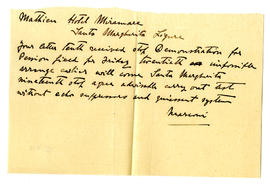 Mathieu Hotel Miramare
Santa Margherita Ligure
Your letter tenth received stop Demonstration for
Passion fixed for Friday twentieth so impossible
arrange earlier will come Santa Margherita
nineteenth stop agree advisable carry out test
without echo suppressors and quiescent system
Marconi